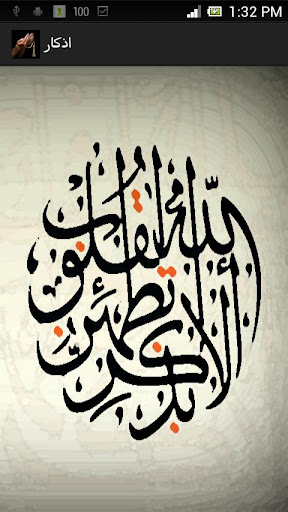 1
100
1:32 PM
اذكار
ألا بذكر الله تطمئن القلوب